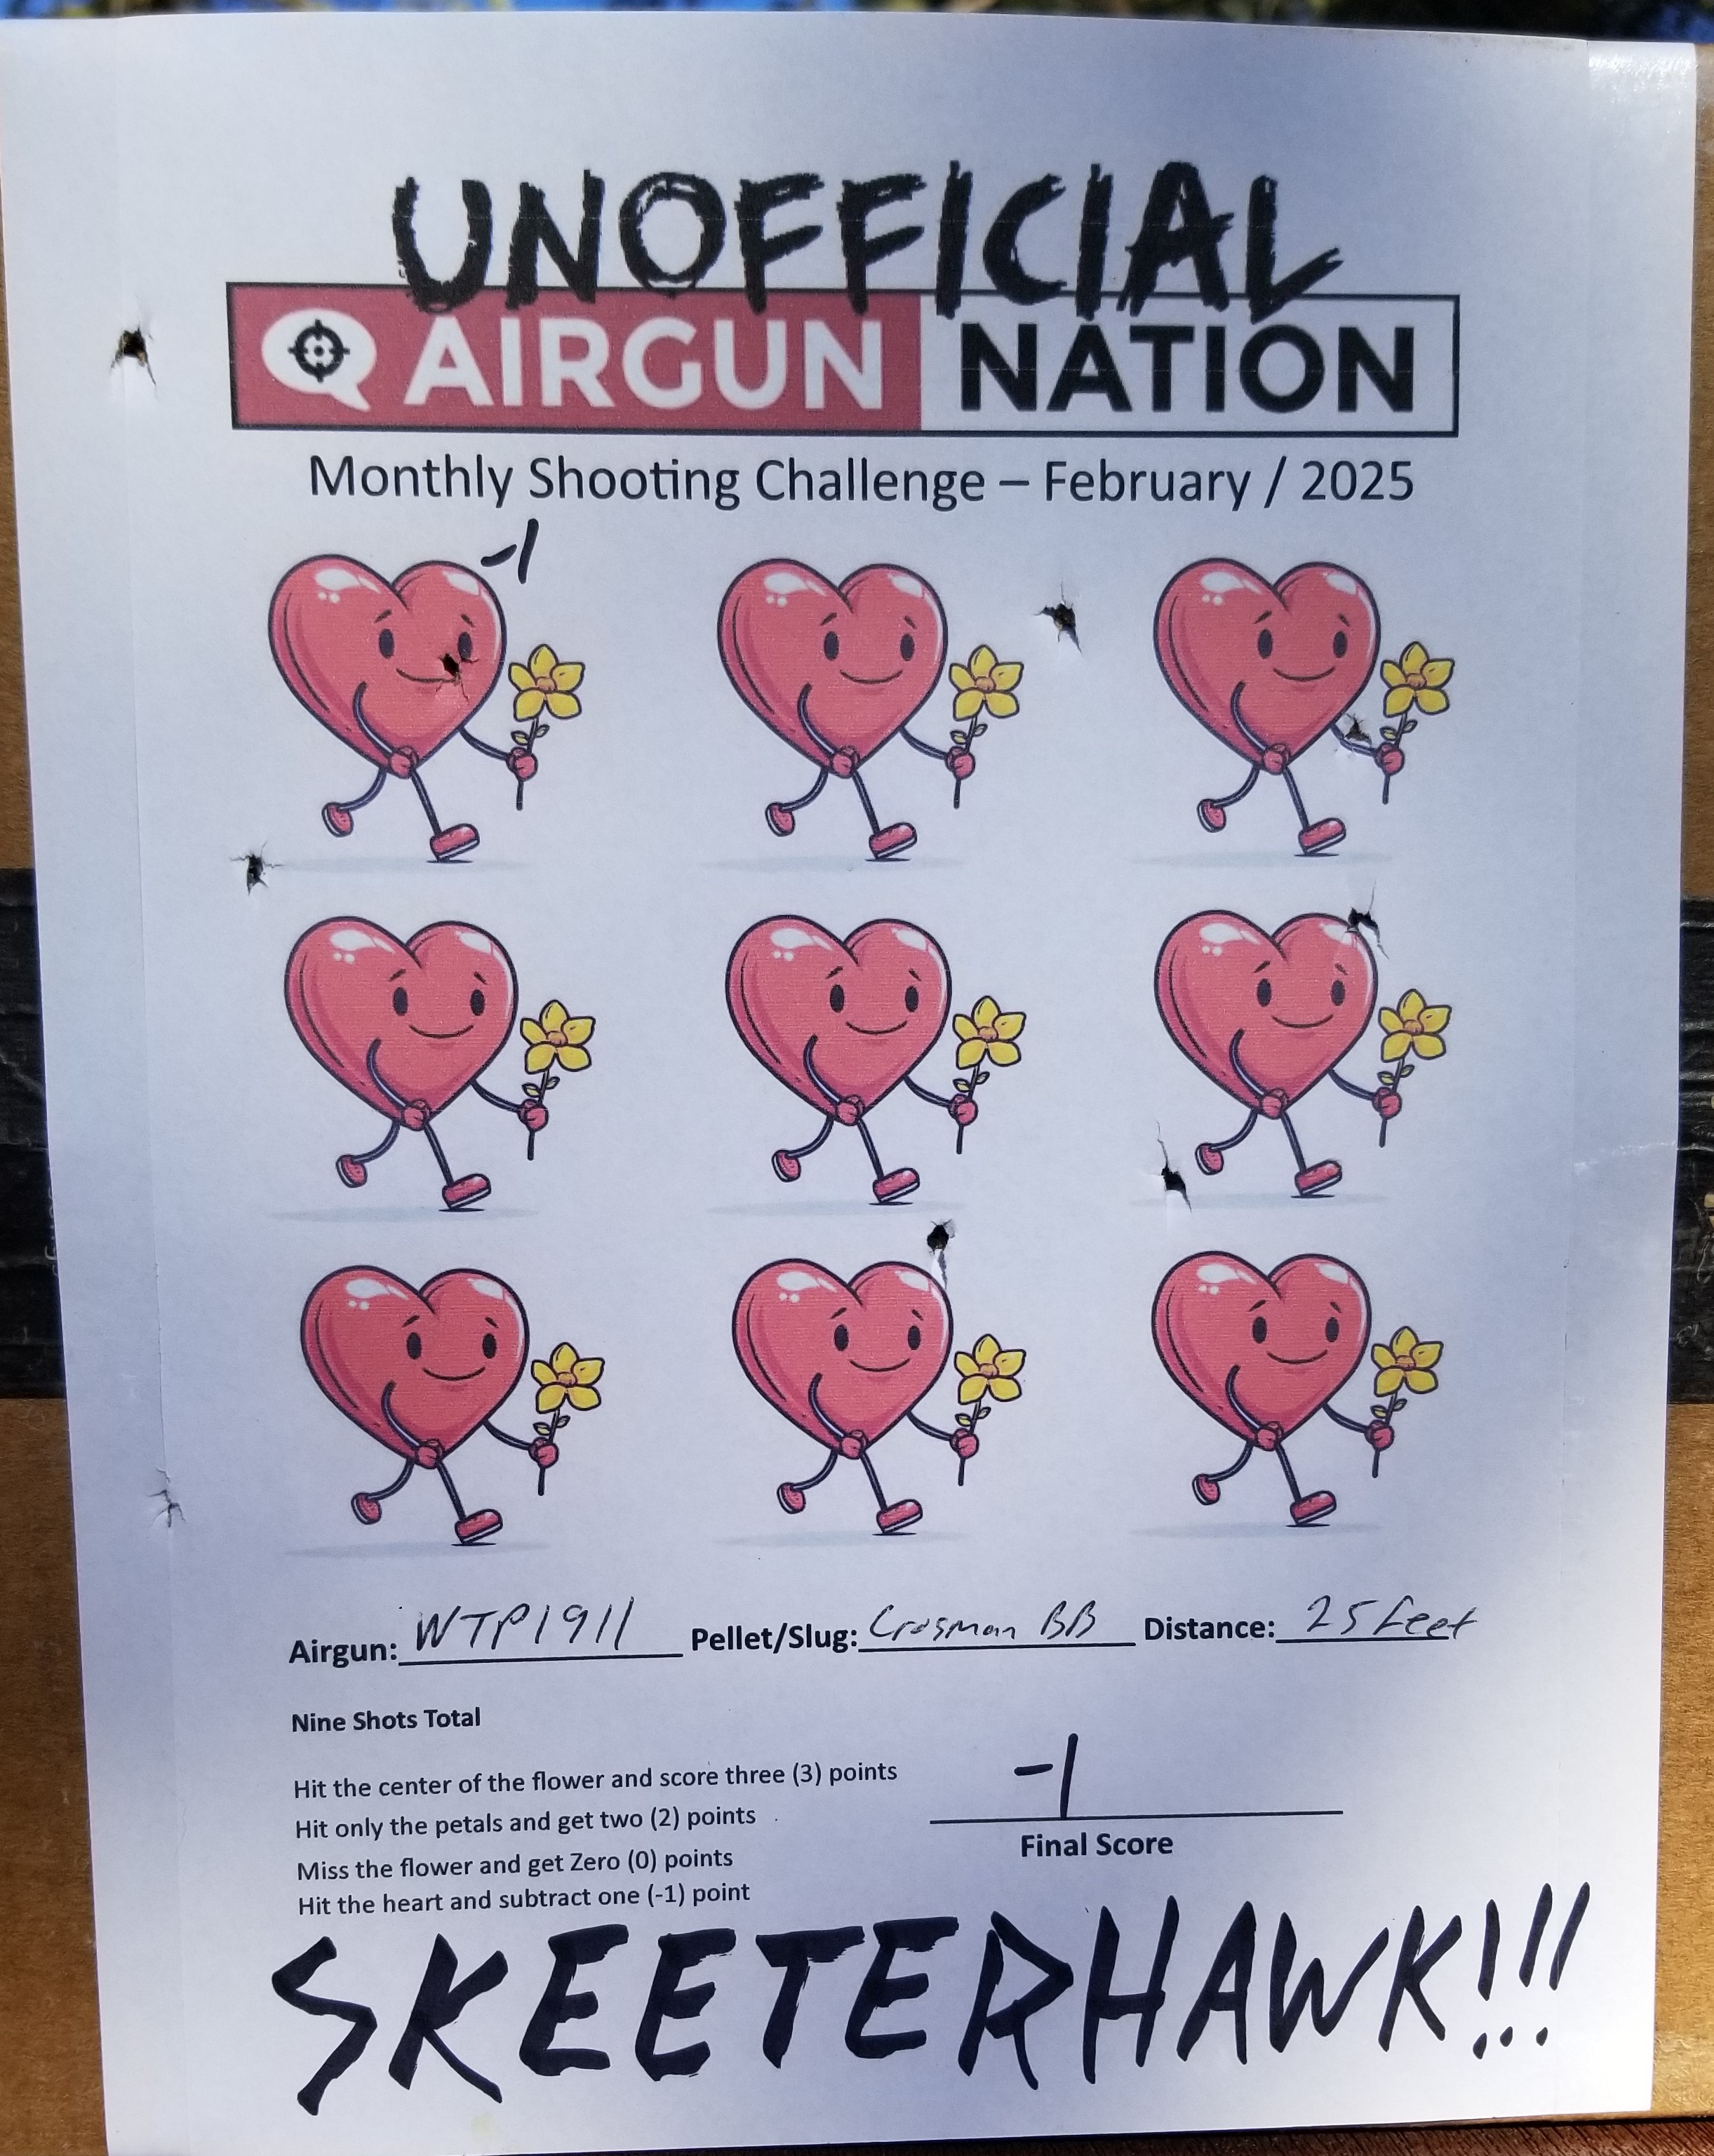 UNOFFICIAL
AIRGUN NATION
Monthly Shooting Challenge – February / 2025
-1
Airgun: WTP1911 Pellet/Slug: Crosman BB Distance: 25 feet
Nine Shots Total
Hit the center of the flower and score three (3) points
Hit only the petals and get two (2) points
Miss the flower and get Zero (0) points
Hit the heart and subtract one (-1) point
-1
Final Score
SKEETERHAWK!!!